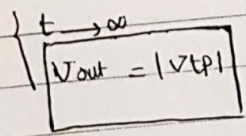 t → ∞
Vout = |Vtp|